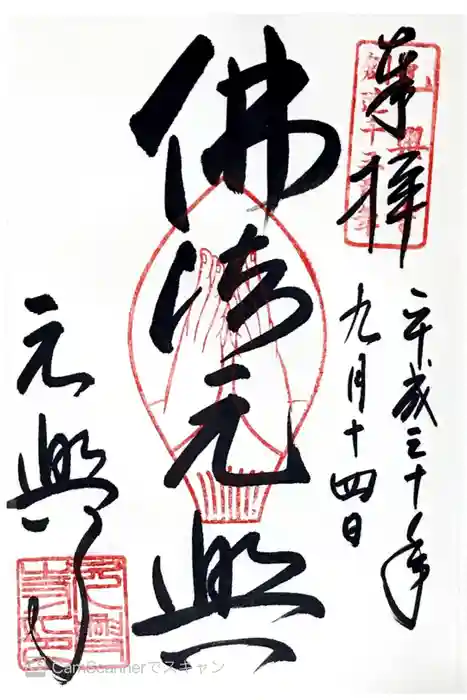 奉拝
平成三十年
九月十四日
佛法元興
元興寺
CamScannerでスキャン